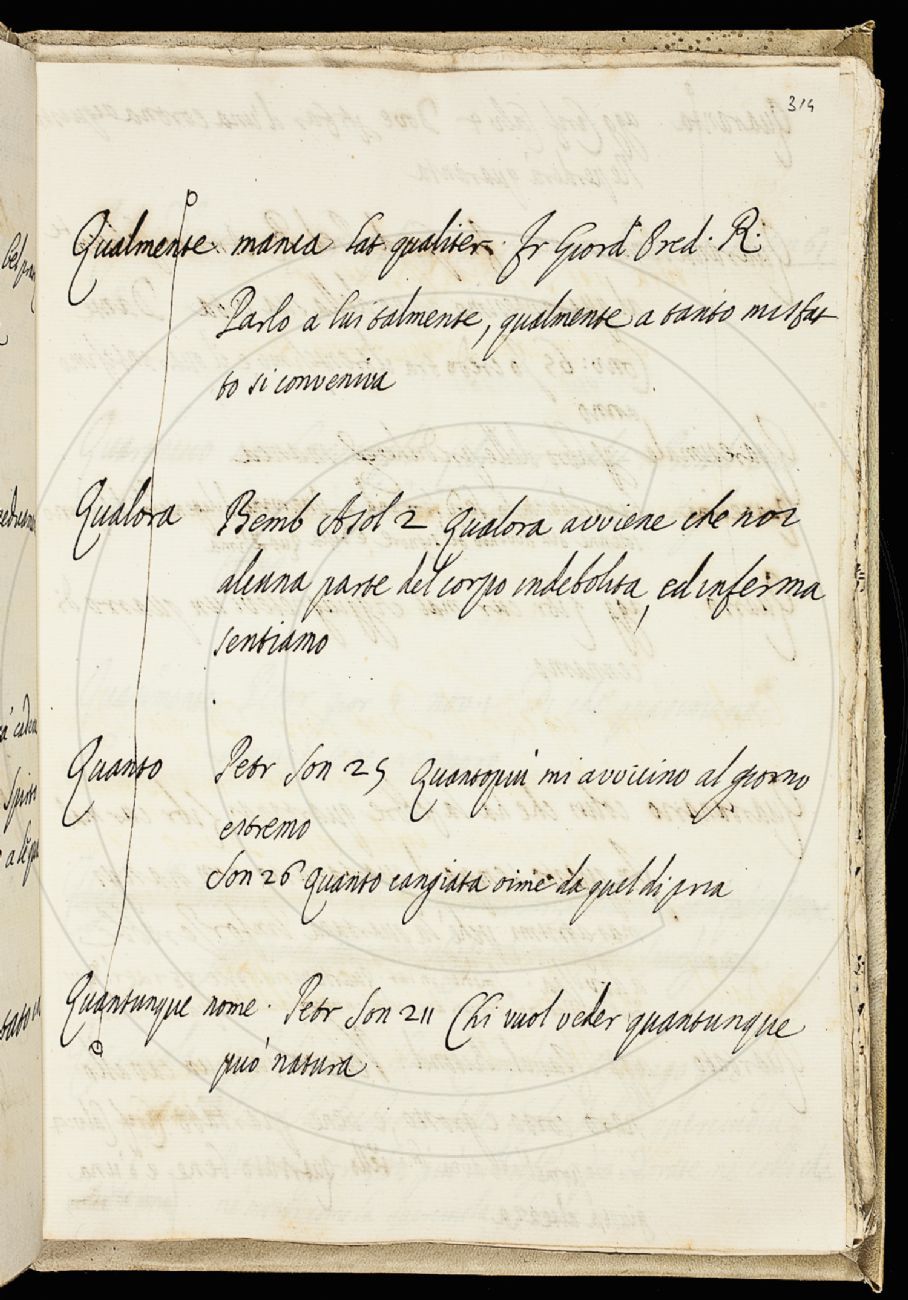 314
Qualmente manca Lat qualiter. Fr Giord. Pred. R.
Parlo a lui talmente, qualmente a tanto misfat
to si conveniva
Qualora Bemb Asol 2 Qualora avviene che noi
alcuna parte del corpo indebolita, ed inferma
sentiamo
Quanto Petr Son 25 Quantopiù mi avvicino al giorno
estremo
Son 26 Quanto cangiata oimè da quel di pria
Quantunque nome. Petr Son 211 Chi vuol veder quantunque
può natura